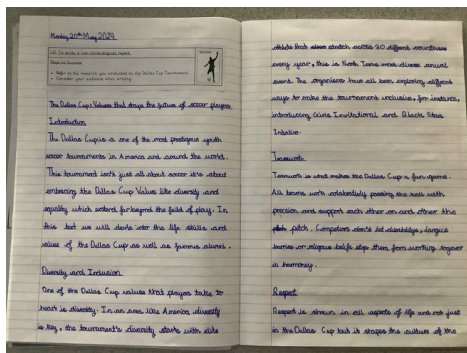 Monday 20th May 2024
LO: To write a non-chronological report.
Steps to Success
Refer to the research you conducted on the Dallas Cup Tournament
Consider your audience when writing.
The Dallas Cup: Values that shape the future of soccer players
Introduction
The Dallas Cup is a one of the most prestigious youth
soccer tournaments in America and around the world.
This tournament isn't just all about soccer it's about
embracing the Dallas Cup Values like diversity and
equality which extend far beyond the field of play. In
this text we will delve into the life skills and
values of the Dallas Cup as well as famous alumni.
Diversity and Inclusion
One of the Dallas Cup values that players take to
heart is diversity. In an area like America diversity
is key, the tournament's diversity starts with elite
athlete that stretch across 20 different countries
every year, this is North Texas most diverse annual
event. The organisers have all been exploring different
ways to make the tournament inclusive, for instance,
introducing Girls Invitational and Black Stars
Initative.
Teamwork
Teamwork is what makes the Dallas Cup a fun game.
All teams work collabortivly passing the ball with
precision and support each other on and other the
pitch. Competitors don't let disabilitys, langue
barries or religous beliefs stop them from working together
in harmoney.
Respect
Respect is shown in all aspects of life and not just
in the Dallas Cup but it shapes the culture of the